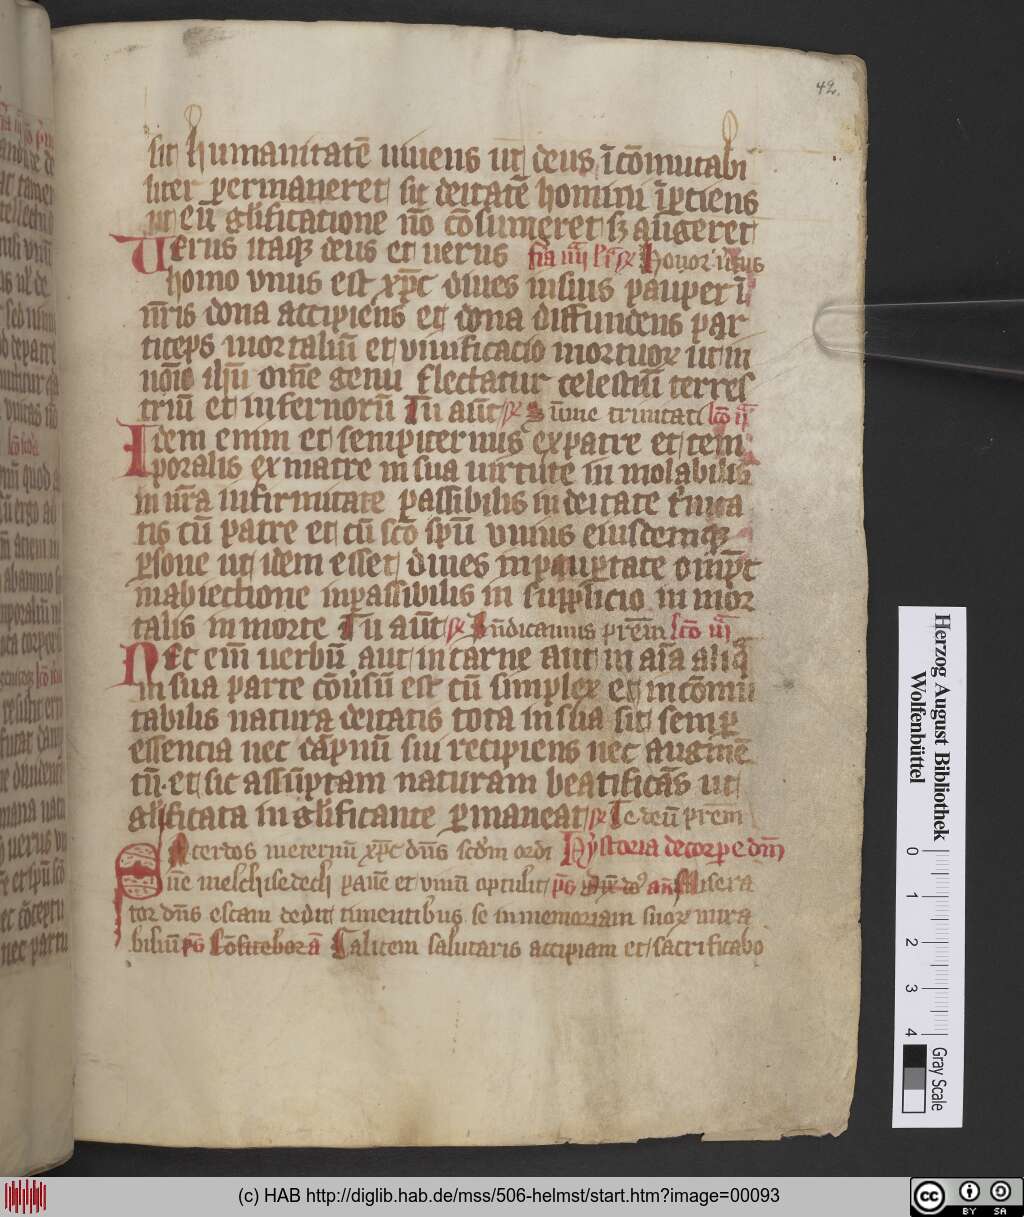 42.
sit humanitatē uiuens ut deus ī cōmutabi
liter permaneret sic deitatē homini īꝑtiens
ut eū gl̄ificatione nō cōsumeret sꝫ augeret
Uerus itaqꝫ deus et uerus fīa iiii lc̄ ℟ Honor uirtus
homo vnus est xp̄c diues in suis pauper ī
nr̄is dona accipiens et dona diffundens par
ticeps mortaliū et viuificacio mortuoꝝ ut in
noīe ih̄u om̄e genu flectatur celestiū terres
triū et infernorū Tu aūt ℟ Sūme trinitati lc̄o ii
Idem enim et sempiternus ex patre et tem
poralis ex matre in sua uirtute in uiolabilis
in nr̄a infirmitate passibilis in deitate t̄nita
tis cū patre et cū sc̄o sp̄u vnius eiusdemqꝫ
ꝑsone ut idem esset diues in pauꝑtate omīpt̄
in abiectione inpassibilis in supplicio in mor
talis in morte Tu aūt ℟ Bn̄dicamus prēm lc̄o iii
Nec em̄ uerbū aut in carne aut in aīa aliq̄
in sua parte cōuersū est cū simplex et incōmu
tabilis natura deitatis tota in sua sit semꝑ
essencia nec dāpnū sui recipiens nec augmē
tū et sic assūptam naturam beatificās ut
gl̄ificata in gl̄ificante ꝑmaneat ℟ Te deū prēm
Sacerdos in eternū xp̄c dn̄s scd̄m ordi Hystoria de corpe dn̄i
nē melchisedech panē et vinū optulit ps̄ Dix̄ dn̄s an̄ Misera
tor dn̄s escam dedit timentibus se in memoriam suoꝝ mira
biliū ps̄ Cōfitebor an̄ Calicem salutaris accipiam et sacrificabo
Herzog August Bibliothek
Wolfenbüttel
0 1 2 3 4
Gray Scale
(c) HAB http://diglib.hab.de/mss/506-helmst/start.htm?image=00093
cc BY SA